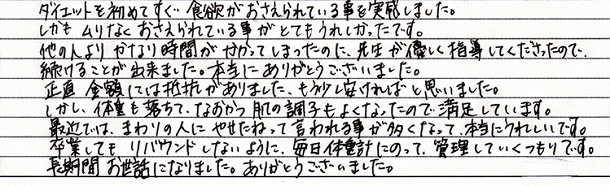 ダイエットを初めてすぐ食欲がおさえられている事を実感しました。
しかもムリなくおさえられている事がとてもうれしかったです。
他の人よりかなり時間がかかってしまったのに、先生が優しく指導してくださったので、
続けることが出来ました。本当にありがとうございました。
正直金額には抵抗がありました、もう少し安ければと思いました。
しかし、体重も落ちて、なおかつ肌の調子もよくなったので満足しています。
最近では、まわりの人にやせたねって言われる事が多くなって、本当にうれしいです。
卒業してもリバウンドしないように、毎日体重計にのって、管理していくつもりです。
長期間お世話になりました。ありがとうございました。